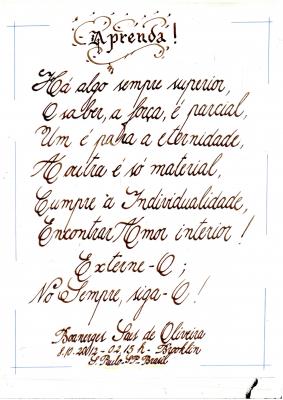 Aprenda!
Há algo sempre superior,
O saber, a força, é parcial,
Um é para a eternidade,
A outra é só material,
Cumpre à Individualidade,
Encontrar Amor interior!
Externe-O;
No Sempre, siga-O!
Boanerges Saes de Oliveira
8.10.2012 - 02,15 h - Brooklin
S. Paulo. SP. Brasil